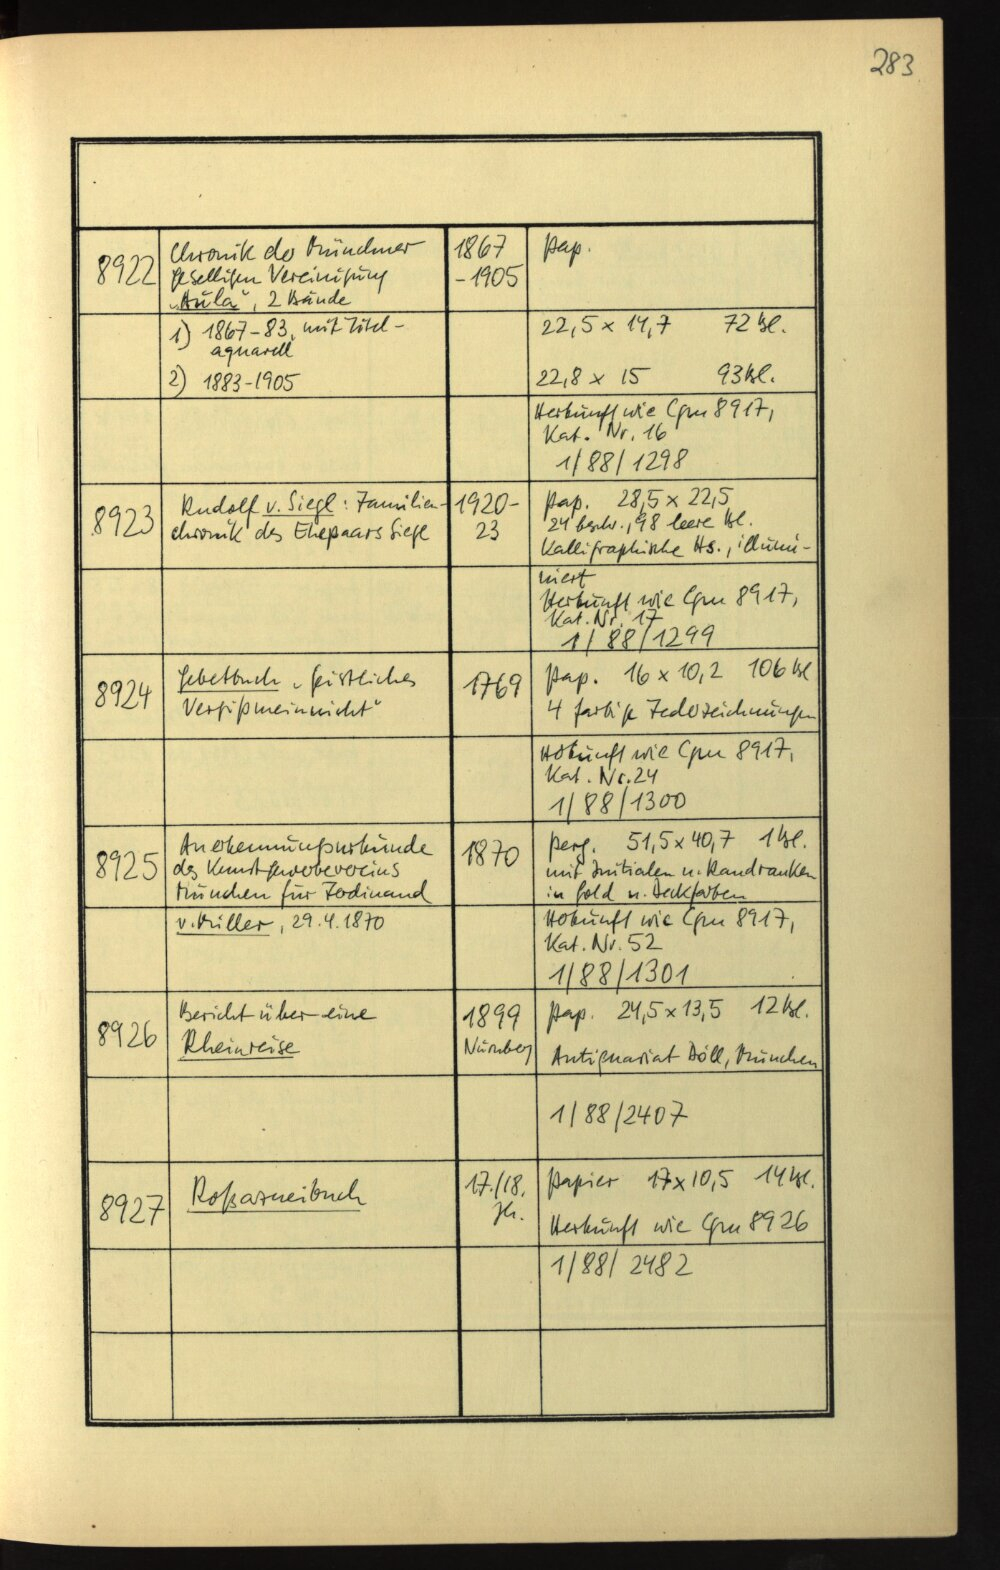 283
8922
Chronik der Münchner
geselligen Vereinigung
„Aula“, 2 Bände
1867
-1905
Pap.
1) 1867-83, mit Titel-
aquarell
2) 1883-1905
22,5 x 14,7 72 Bl.
22,8 x 15 93 Bl.
Herkunft wie Cgm 8917,
Kat. Nr. 16
1/88/1298
8923
Rudolf v. Siegl: Familien-
chronik des Ehepaars Siegl
1920-
23
Pap. 28,5 x 22,5
24 beschr., 98 leere Bl.
Kalligraphische Hs., illumi-
niert
Herkunft wie Cgm 8917,
Kat. Nr. 17
1/88/1299
8924
Gebetbuch „Geistliches
Vergißmeinnicht“
1769
Pap. 16 x 10,2 106 Bl
4 farbige Federzeichnungen
Herkunft wie Cgm 8917,
Kat. Nr. 24
1/88/1300
8925
Anerkennungsurkunde
des Kunstgewerbevereins
München für Ferdinand
v. Miller, 29.4.1870
1870
Perg. 51,5 x 40,7 1 Bl.
mit Initialen u. Randranken
in Gold u. Deckfarben
Herkunft wie Cgm 8917,
Kat. Nr. 52
1/88/1301
8926
Bericht über eine
Rheinreise
1899
Nürnberg
Pap. 24,5 x 13,5 12 Bl.
Antiquariat Döll, München
1/88/2407
8927
Roßarzneibuch
17./18.
Jh.
Papier 17 x 10,5 14 Bl.
Herkunft wie Cgm 8926
1/88/2482